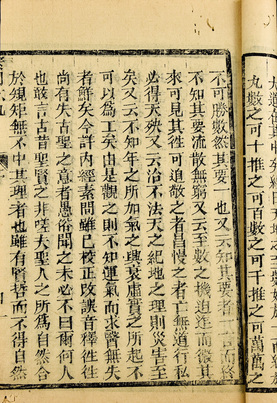 凡數之可十推之可百數之可千推之可萬萬之
不可勝數然其要一也又云知其要者一言而終
不知其要流散無窮又云至數之機迫迮而微其
來可見其徃可追敬之者昌慢之者亡無道行私
必得天殃又云治不法天之紀地之理則災害至
矣又云不知年之所加氣之興衰虛實之所起不
可以為工矣由是觀之則不知運氣而求醫無失
者鮮矣今詳内經素問雖已校正改誤音釋徃徃
尚有失古聖之意者愚俗聞之未必不曰爾何人
也敢言古昔聖賢之非嗟夫聖人之所為自然合
於規矩無不中其理者也雖有賢哲而不得自然